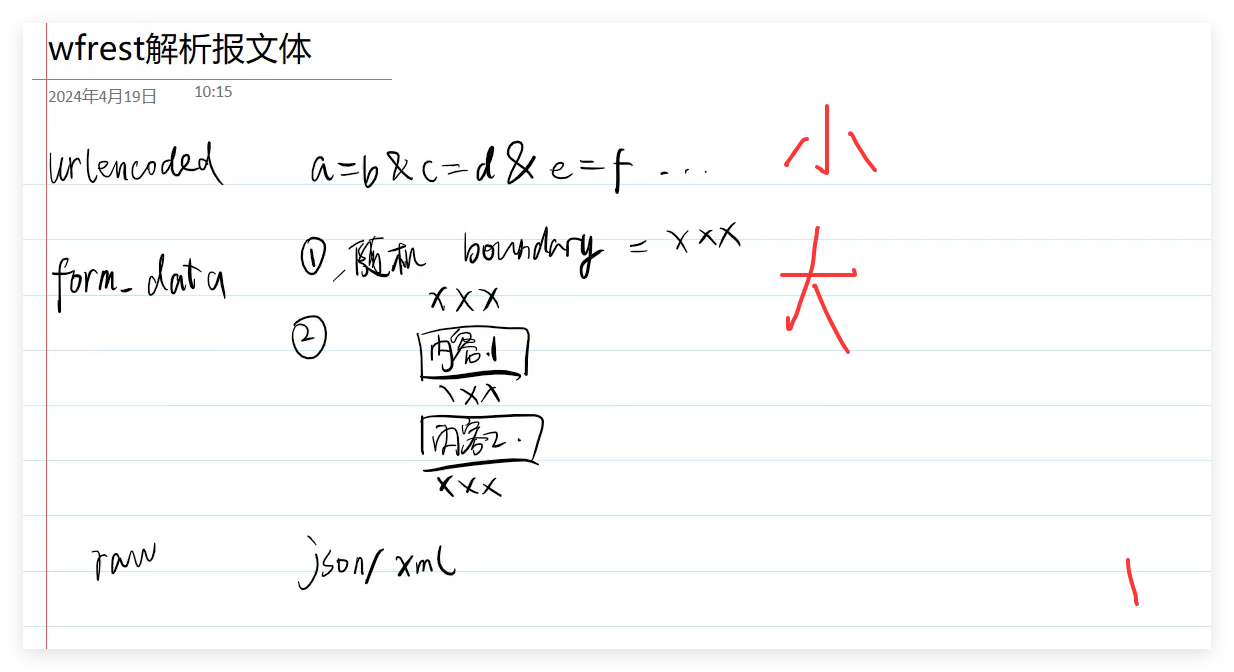 wfrest解析报文体
2024年4月19日 10:15
urlencoded a=b&c=d&e=f ... 小
form_data ① 随机 boundary = xxx 大
②
xxx
内容1
xxx
内容2.
xxx
raw json/xml